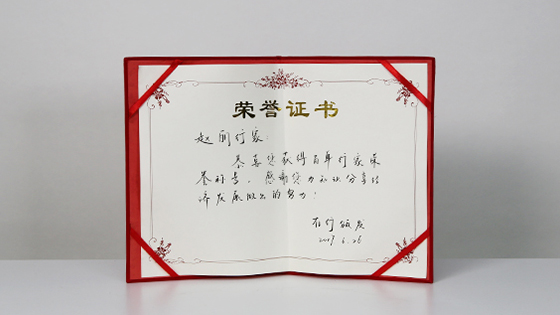 荣誉证书
赵丽行家：
恭喜您获得百单行家荣
誉称号，感谢您为知识分享经
济发展做出的努力！
在行颁发
6.26